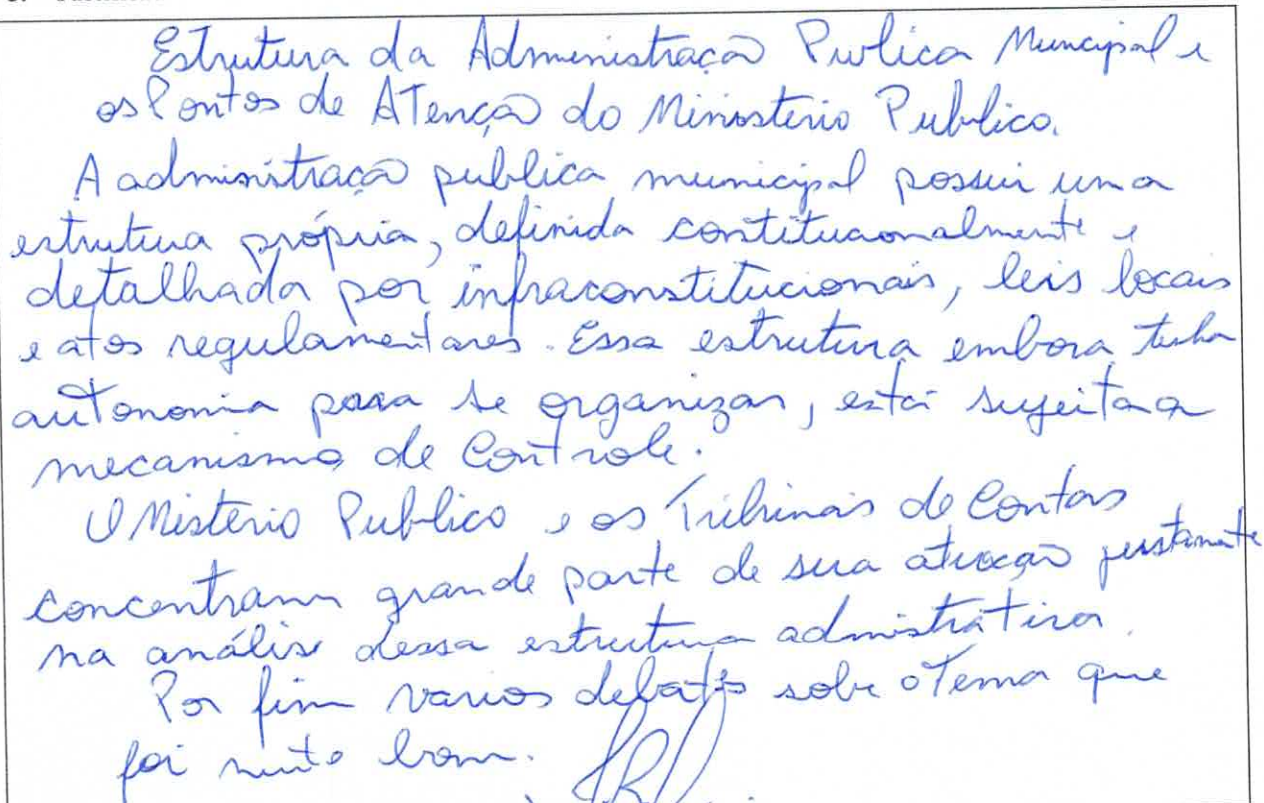 Estrutura da Administração Publica Muncipal e
os Pontos de ATenção do Ministério Publico.
A administração publica municipal possui uma
estrutura própria, definida constitucionalmente e
detalhada por infraconstitucionais, leis locais
e atos regulamentares. Essa estrutura embora tenha
autonomia para se organizar, está sujeita a
mecanismo de Controle.
O Mistério Publico e os Tribunais de Contas
concentram grande parte de sua atuação justamente
na análise dessa estrutura admistrativa.
Por fim varios debates sobre o Tema que
foi muito bom.